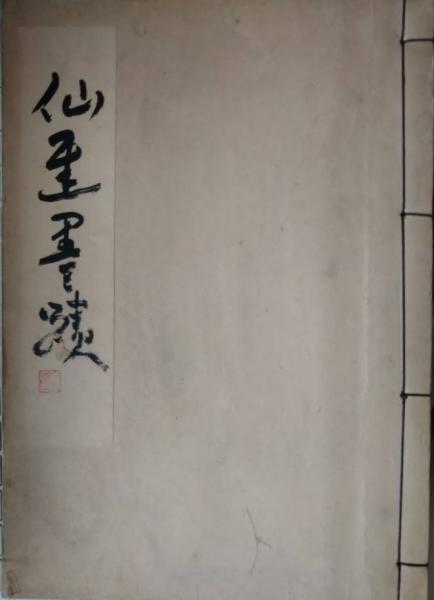 仙厓墨蹟